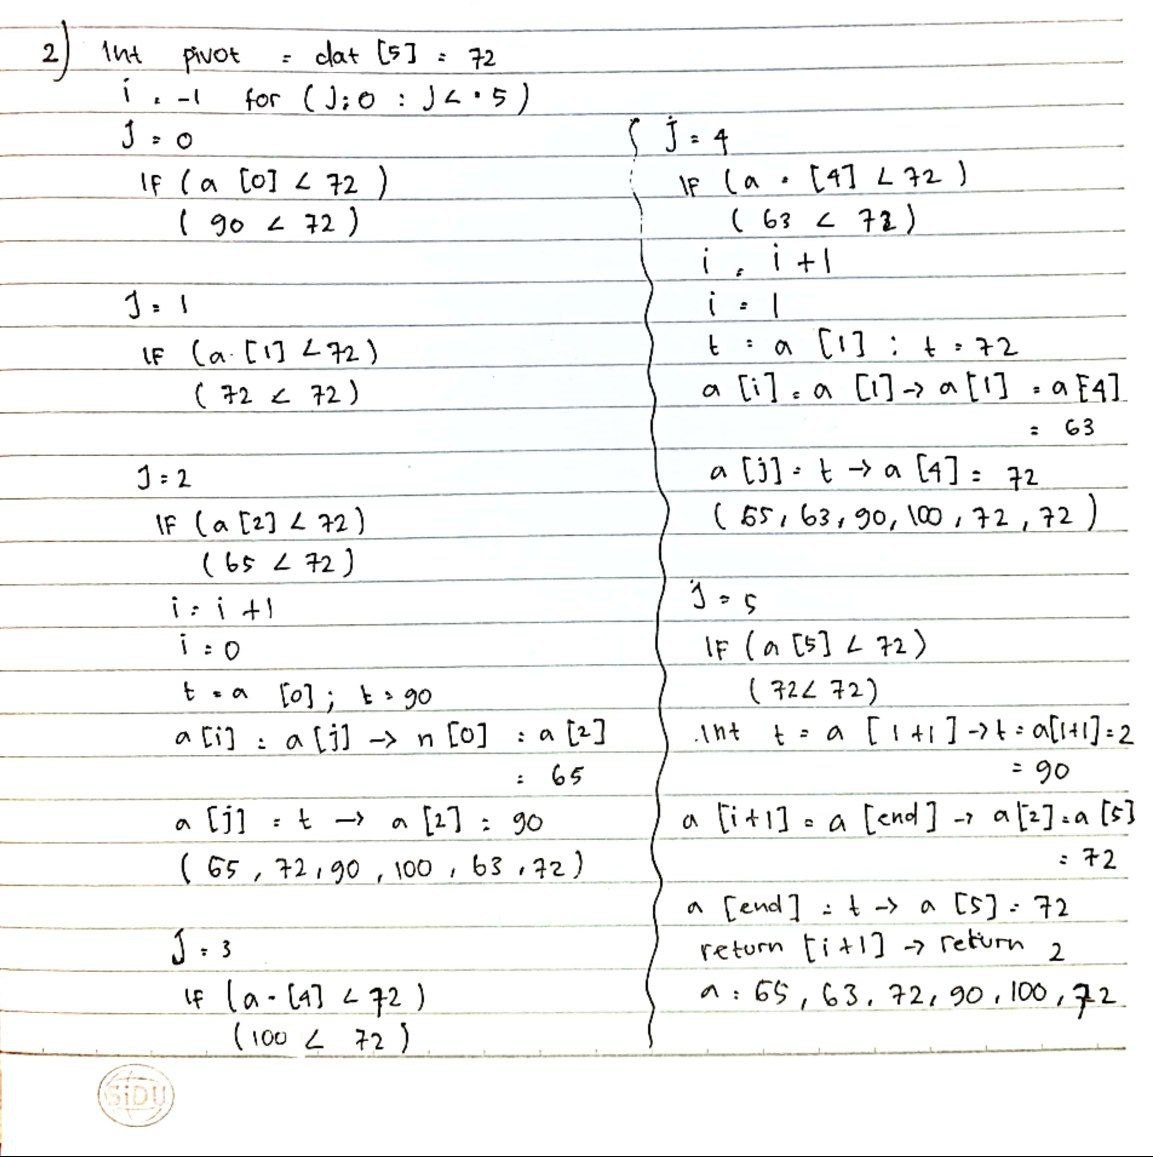 2) Int pivot = dat [5] = 72
i = -1 for (J=0 : J<=5)
J = 0
IF (a [0] < 72 )
( 90 < 72 )
J = 1
IF (a [1] < 72)
( 72 < 72 )
J = 2
IF (a [2] < 72)
( 65 < 72 )
i = i +1
i = 0
t = a [0] ; t = 90
a [i] = a [j] → n [0] = a [2]
= 65
a [j] = t → a [2] = 90
( 65 , 72 , 90 , 100 , 63 , 72 )
J = 3
IF (a - [4] < 72 )
(100 < 72 )
J = 4
IF (a = [4] < 72 )
( 63 < 72 )
i = i +1
i = 1
t = a [1] : t = 72
a [i] = a [1] → a [1] = a [4]
= 63
a [j] = t → a [4] = 72
( 65 , 63 , 90 , 100 , 72 , 72 )
J = 5
IF (a [5] < 72)
( 72 < 72)
Int t = a [ 1+1 ] → t = a[1+1] = 2
= 90
a [i+1] = a [end] → a[2] = a [5]
= 72
a [end] = t → a [5] = 72
return [i+1] → return 2
a = 65 , 63 , 72 , 90 , 100 , 72
SiDU